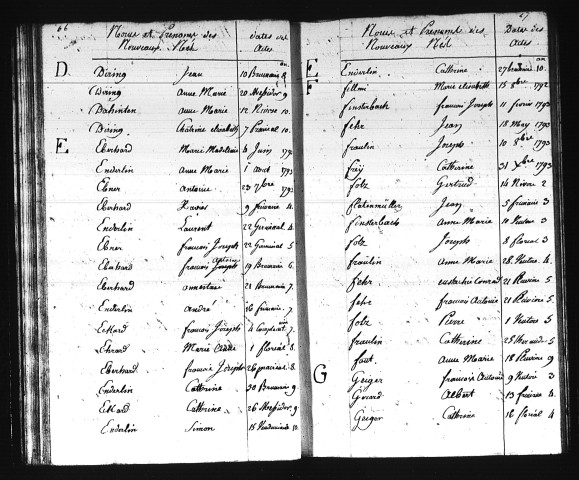 66
Noms et Prenoms des Dates des
Nouveaux Nés Actes
an
D
Diring Jean 10 Brumair 8.
Diring Anne Marie 20 Messidor 9
Anne Marie 12 Nivose 10.
Diring 7 Prairial 10.
E
Eberhard Marie Madelaine 6 Juin
Enderlin Anne Marie 1 aout 1793
Ebner Antoine 23 7bre 1793
Eberhard Xavier 9 frimaire 4.
Enderlin Laurent 22 Germinal 4.
Ebner francois Joseph 22 Germinal 5
Eberhard francois Antoine Joseph 19 Brumair 6.
Eberhard 21 Brumair 7.
Enderlin andré 26 frimair 7
Ekkard francois Joseph 4 Complemt 7.
Ehrard Marie 1 floreal 8.
Eberhard francois Joseph 26 prairial 8.
Enderlin Catherine 30 Brumair 9
Ekkard Catherine 26 Messidor 9
Enderlin Simon 15 Vendemiair 10.
67
Noms et Prenoms des Dates des
Nouveaux Nés Actes
an
E
Enderlin Catherine 27 10.
F
Marie elisabeth 15 8bre 1792
finsterbach francois Joseph 11 fevrier 1793
fehr Jean 18 May 1793
fraulin Joseph 10 8bre 1793
frey Catherine 31 Xbre 1793
folz Gertrud 14 Nivose 2
Jean 5 frimaire 3
finsterbach Anne Marie 10 Ventose 3
folz Joseph 8 floreal 3
fraulin Anne Marie 28 Ventose 4.
fehr eustache Conrad 21 Pluviose 5
fehr francois Antoine 21 Pluviose 5
folz Pierre 1 Ventose 5
fraulin Catherine 5
faut Anne Marie 18 Pluviose 9
G
Geiger francois Antoine 9 Ventose 3
Girard Albert 13 frimaire 4
Geiger Catherine 16 floreal 4